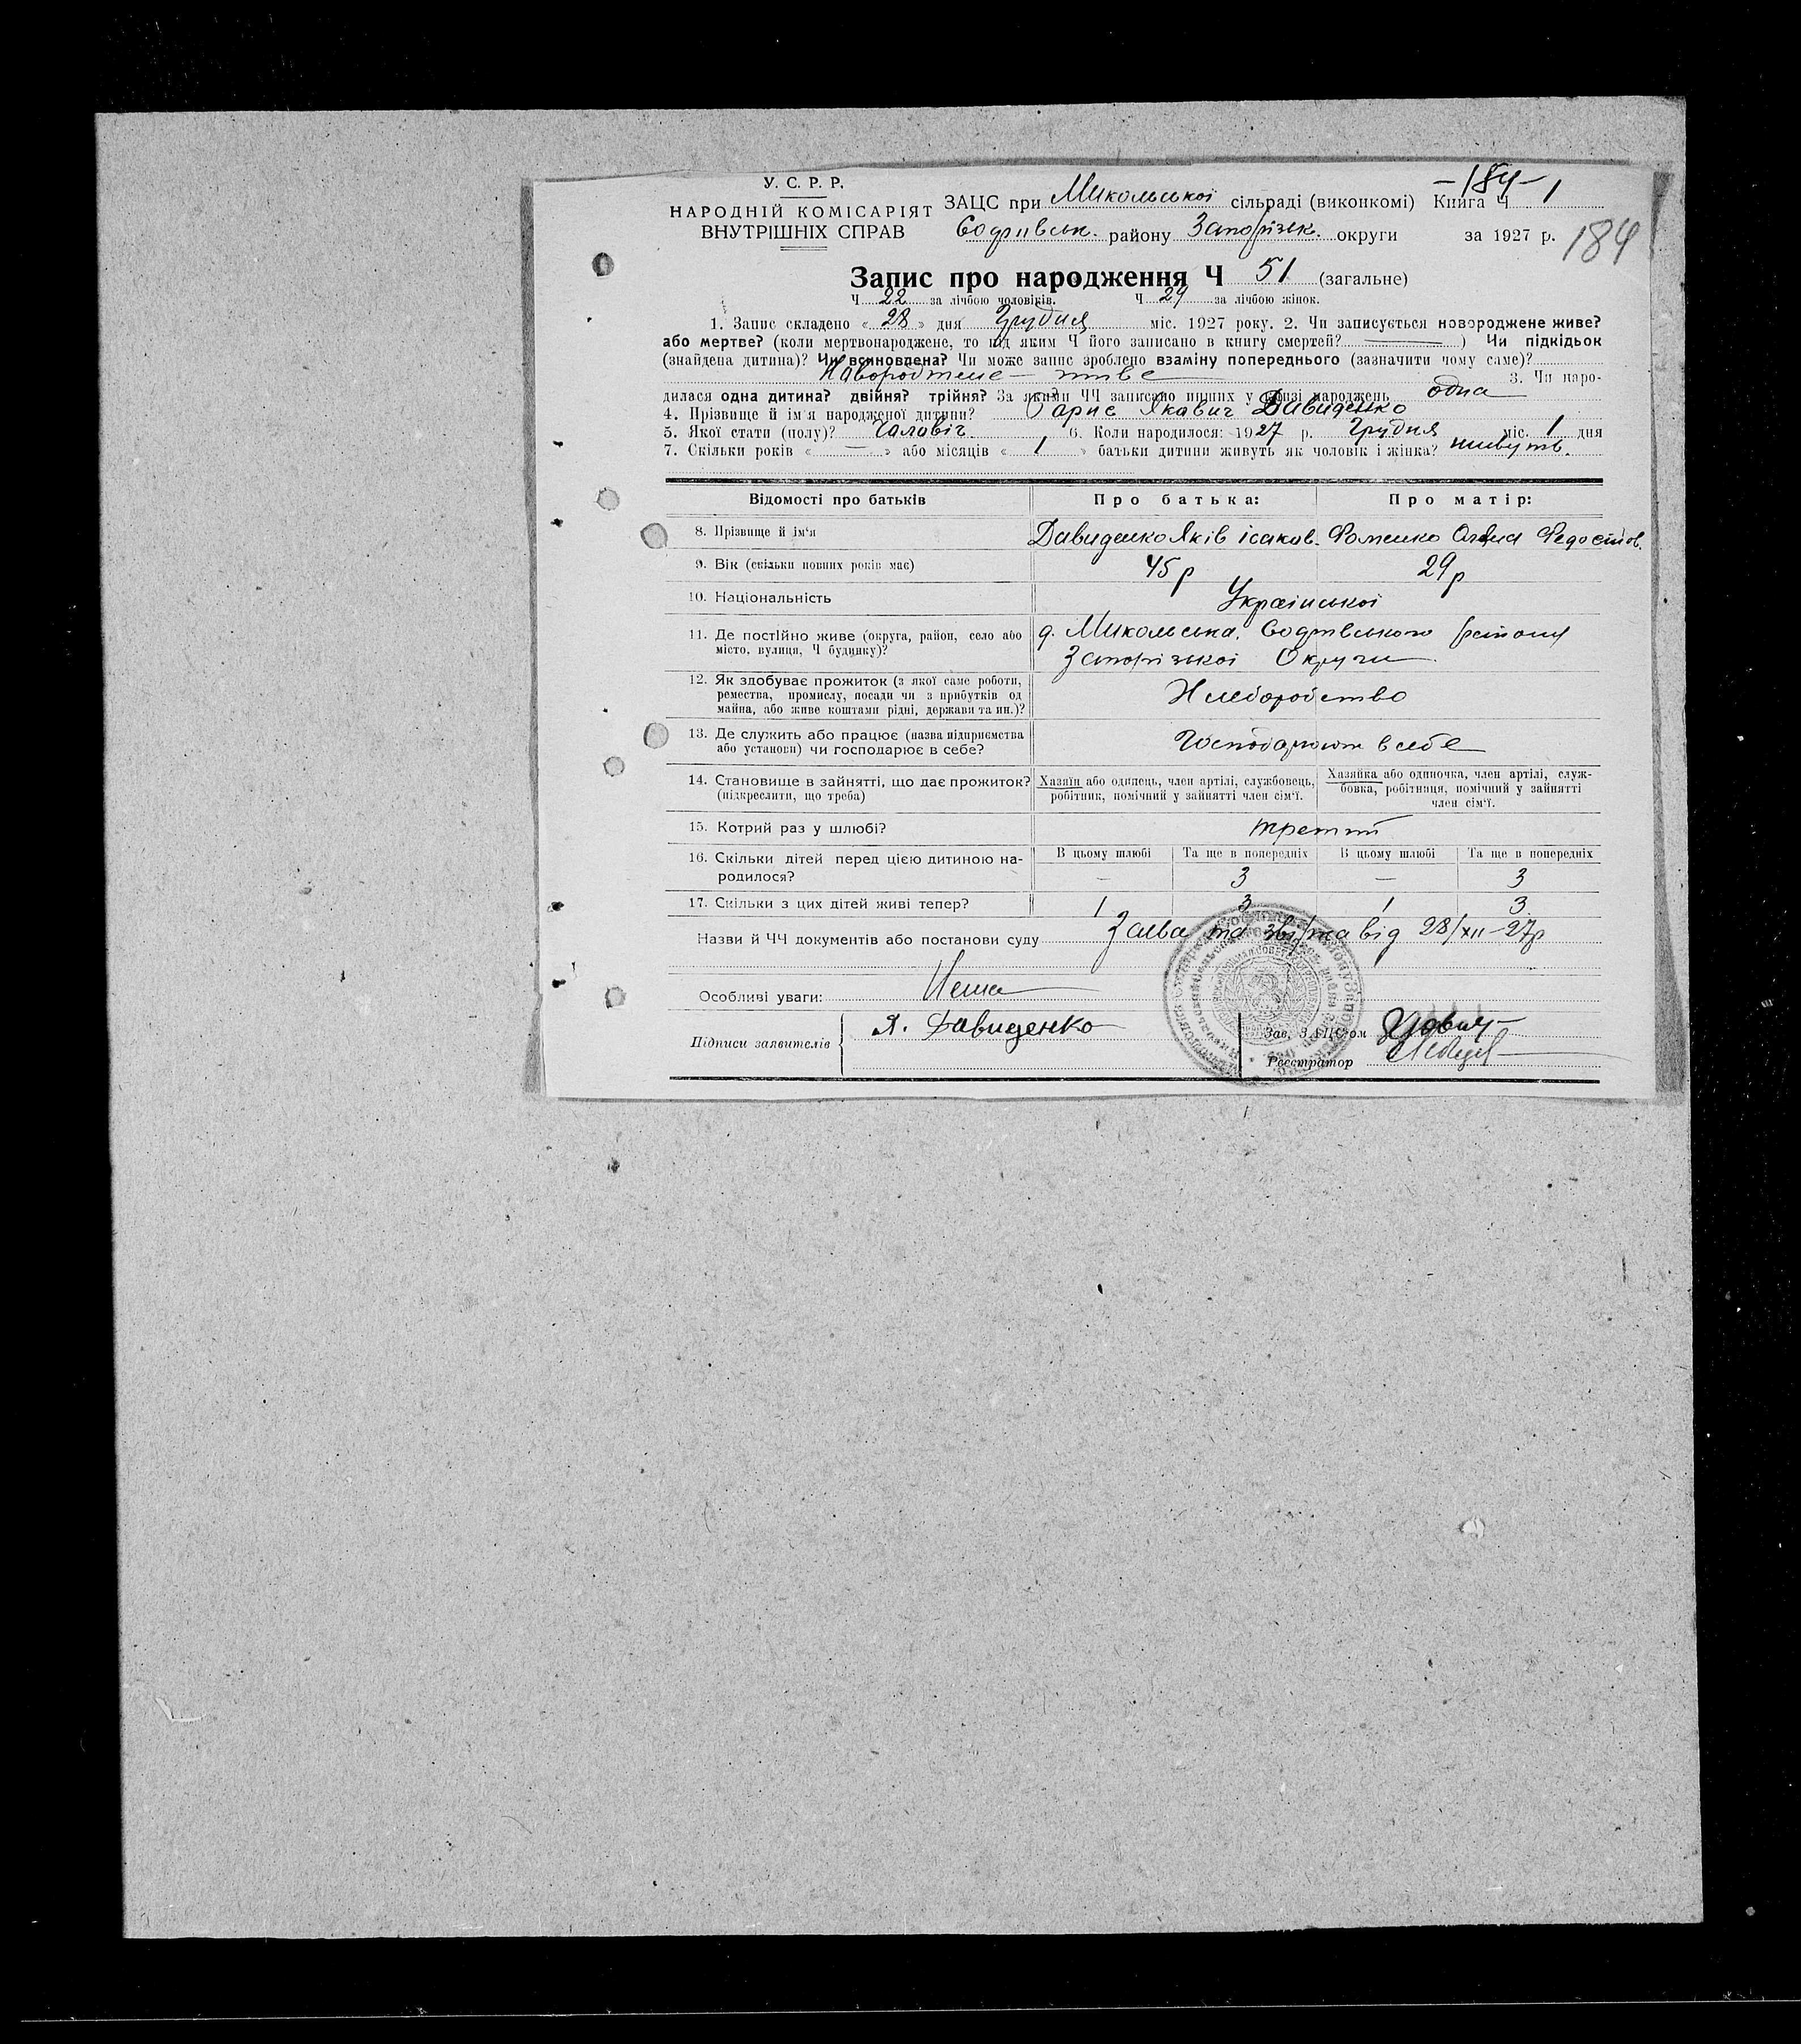 У. С. Р. Р.
НАРОДНІЙ КОМІСАРІЯТ
ВНУТРІШНІХ СПРАВ
ЗАЦС при Микольської сільраді (виконкомі) Книга Ч 1
-184-
района Запорізьк. округи за 1927 р.
184
Запис про народження Ч 51 (загальне)
Ч 22 за лічбою чоловіків. Ч 29 за лічбою жінок.
1. Запис складено « 28 » дня Грудня міс. 1927 року. 2. Чи записується новороджене живе?
або мертве? (коли мертвонароджене, то під яким Ч його записано в книгу смертей? ) Чи підкідьок
(знайдена дитина)? Чи всиновлена? Чи може запис зроблено взаміну попереднього (зазначити чому саме)?
Навородтене - тиве 3. Чи наро-
дилася одна дитина? двійня? трійня? За якими ЧЧ записано инших у книзі народжень одна
4. Прізвище й ім'я народженої дитини? Барис Якавич Давиденко
5. Якої стати (полу)? Чалавіч. 6. Коли народилося: 1927 р. Грудня міс. 1 дня
7. Скільки років « — » або місяців « 1 » батьки дитини живуть як чоловік і жінка? живуть.
Відомості про батьків Про батька: Про матір:
8. Прізвище й ім'я Давиденко Яків ісаков. Фоменко
9. Вік (скільки повних років має) 45 р 29 р
10. Національність Української
11. Де постійно живе (округа, район, село або
місто, вулиця, Ч будинку)?
Микольська, району
Запорізької Округи
12. Як здобуває прожиток (з якої саме роботи,
ремества, промислу, посади чи з прибутків од
майна, або живе коштами рідні, держави та ин.)?
Хлеборобство
13. Де служить або працює (назва підприємства
або установи) чи господарює в себе?
Господарюють в себе
14. Становище в зайнятті, що дає прожиток?
(підкреслити, що треба)
Хазяїн або одинець, член артілі, службовець,
робітник, помічний у зайнятті член сім'ї.
Хазяйка або одиночка, член артілі, служ-
бовка, робітниця, помічний у зайнятті
член сім'ї.
15. Котрий раз у шлюбі? третий
16. Скільки дітей перед цією дитиною на-
родилося?
В цьому шлюбі Та ще в попередніх В цьому шлюбі Та ще в попередніх
— 3 — 3
17. Скільки з цих дітей живі тепер? 1 3 1 3
Назви й ЧЧ документів або постанови суду Заява та від 28/XII-27р
Особливі уваги: Нема
Підписи заявителів Я. Давиденко
Зав. ЗАЦС'ом
Реєстратор